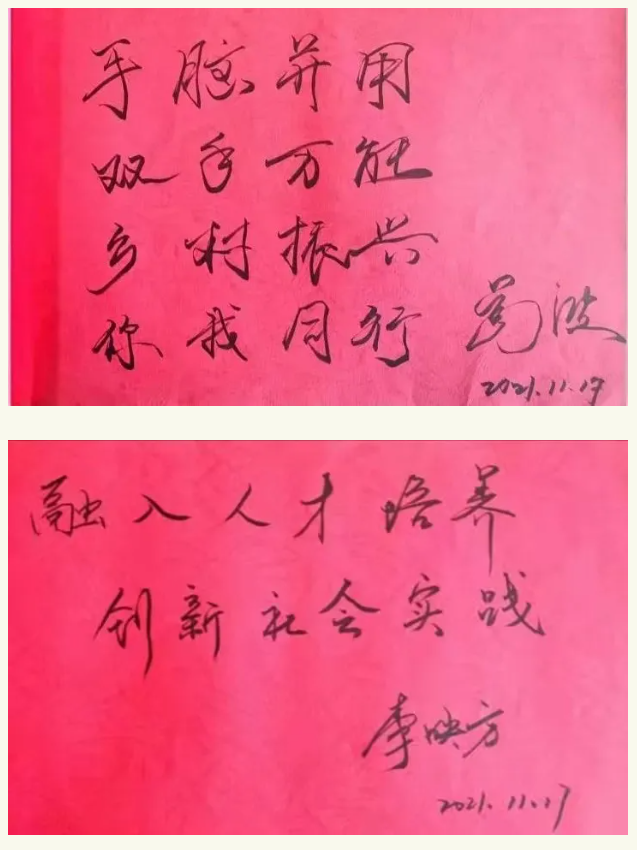 手脑并用
双手万能
乡村振兴
你我同行
葛波
2021.11.17
融入人才培养
创新社会实践
李映方
2021.11.17